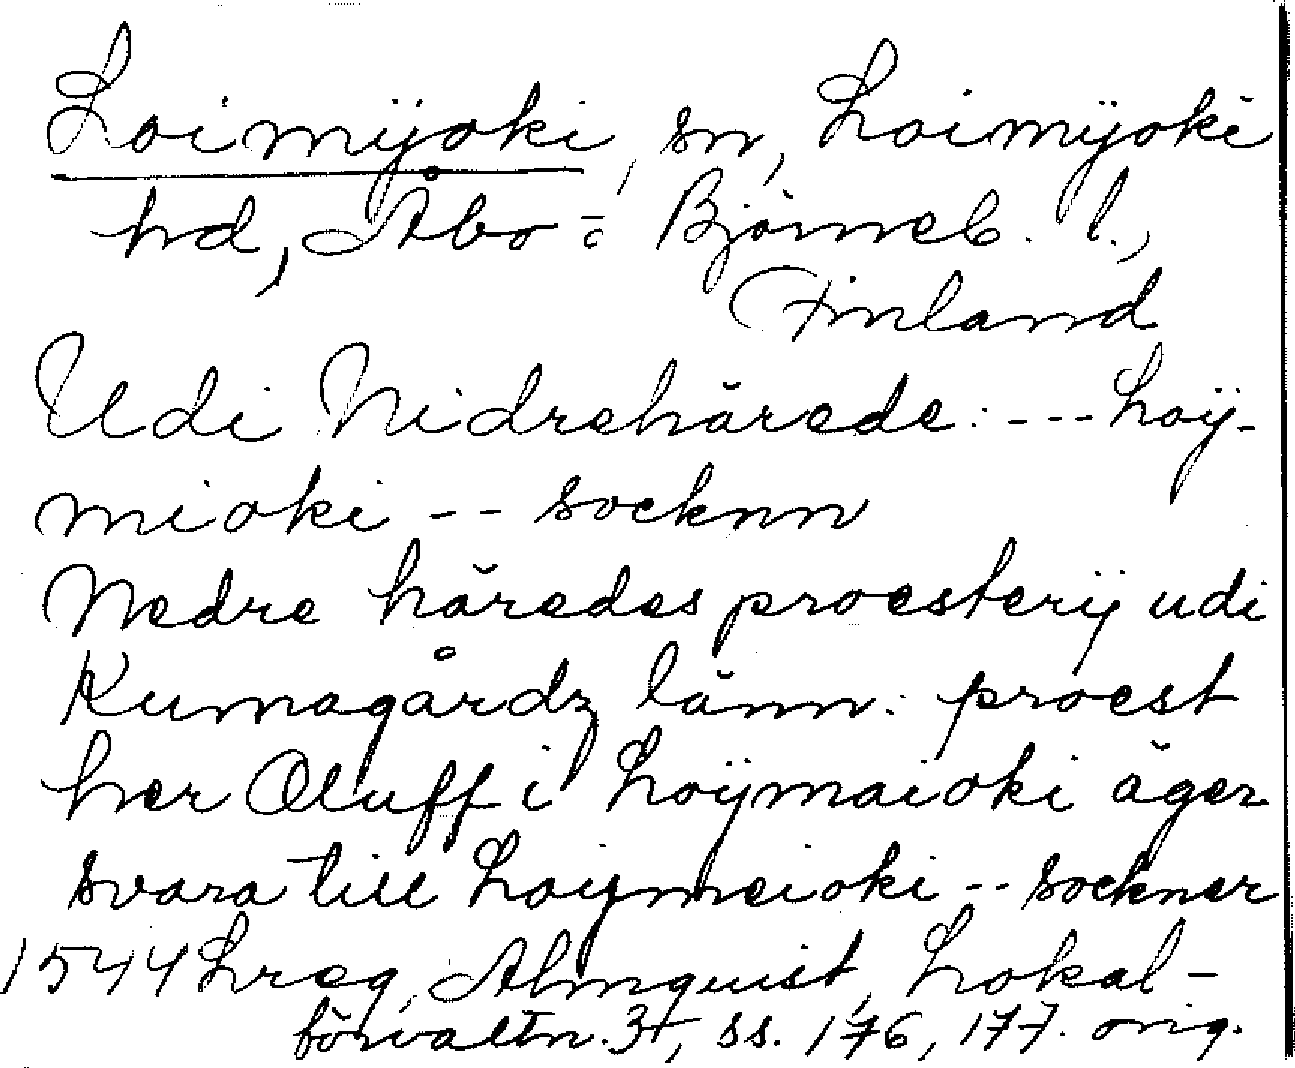 Loimijoki, sn, Loimijoki
hd, Åbo- o. Björneb. l.,
Finland
Udi Nidrehärede: --- Loÿ-
mioki -- socknn
Nedre häredes proesterij udi
Kumagårdz länn: proest
her Oluff i Loÿmaioki äger
svara till Loijmeioki -- sockner
1544 Lreg, Almquist, Lokal-
förvaltn. 3, ss. 176, 177. orig.